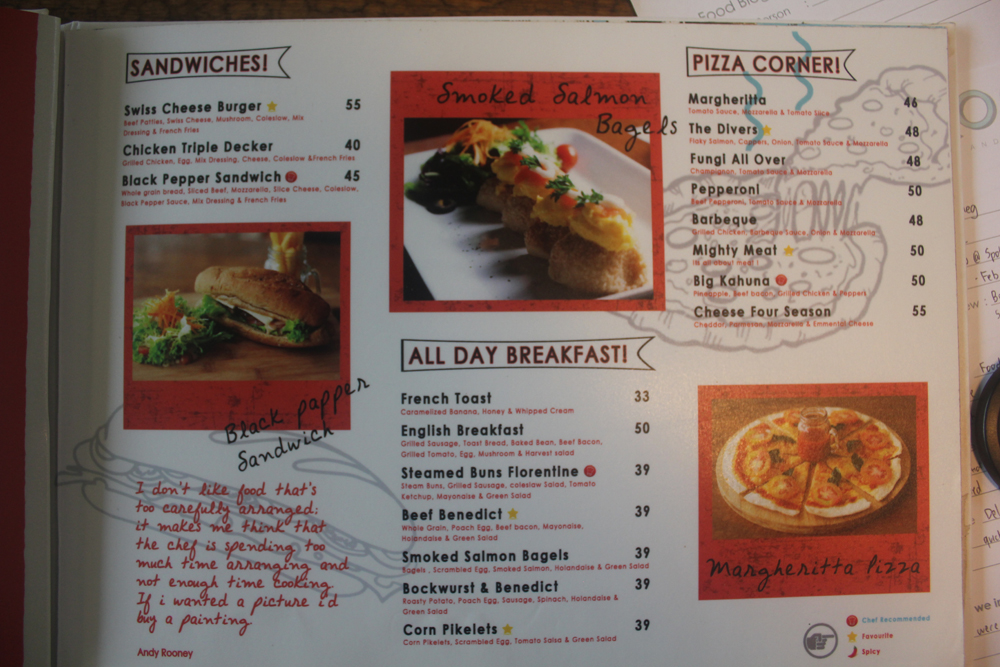 SANDWICHES!
Swiss Cheese Burger 55
Beef Patties, Swiss Cheese, Mushroom, Coleslow, Mix
Dressing & French Fries
Chicken Triple Decker 40
Grilled Chicken, Egg, Mix Dressing, Cheese, Coleslow &French Fries
Black Pepper Sandwich 45
Whole grain bread, Sliced Beef, Mozzarella, Slice Cheese, Coleslow,
Black Pepper Sauce, Mix Dressing & French Fries
Black papper
Sandwich
I don't like food that's
too carefully arranged;
it makes me think that
the chef is spending too
much time arranging and
not enough time cooking
If i wanted a picture i'd
buy a painting
Andy Rooney
Smoked Salmon
Bagels
ALL DAY BREAKFAST!
French Toast 33
Caramelized Banana, Honey & Whipped Cream
English Breakfast 50
Grilled Sausage, Toast Bread, Baked Bean, Beef Bacon,
Grilled Tomato, Egg, Mushroom & Harvest salad
Steamed Buns Florentine 39
Steam Buns, Grilled Sausage, coleslow Salad, Tomato
Ketchup, Mayonaise & Green Salad
Beef Benedict 39
Whole Grain, Poach Egg, Beef bacon, Mayonaise,
Holandaise & Green Salad
Smoked Salmon Bagels 39
Bagels , Scrambled Egg, Smoked Salmon, Holandaise & Green Salad
Bockwurst & Benedict 39
Roasty Potato, Poach Egg, Sausage, Spinach, Holandaise &
Green Salad
Corn Pikelets 39
Corn Pikelets, Scrambled Egg, Tomato Salsa & Green Salad
PIZZA CORNER!
Margheritta 46
Tomato Sauce, Mozzarella & Tomato Slice
The Divers 48
Flaky Salmon, Cappers, Onion, Tomato Sauce & Mozzarella
Fungi All Over 48
Champignon, Tomato Sauce & Mozzarella
Pepperoni 50
Beef Pepperoni, Tomato Sauce & Mozzarella
Barbeque 48
Grilled Chicken, Barbeque Sauce, Onion & Mozzarella
Mighty Meat 50
Its all about meat !
Big Kahuna 50
Pineapple, Beef bacon, Grilled Chicken & Peppers
Cheese Four Season 55
Cheddar, Parmesan, Mozzarella & Emmental Cheese
Margheritta Pizza
Chef Recommended
Favourite
Spicy
Food Blog